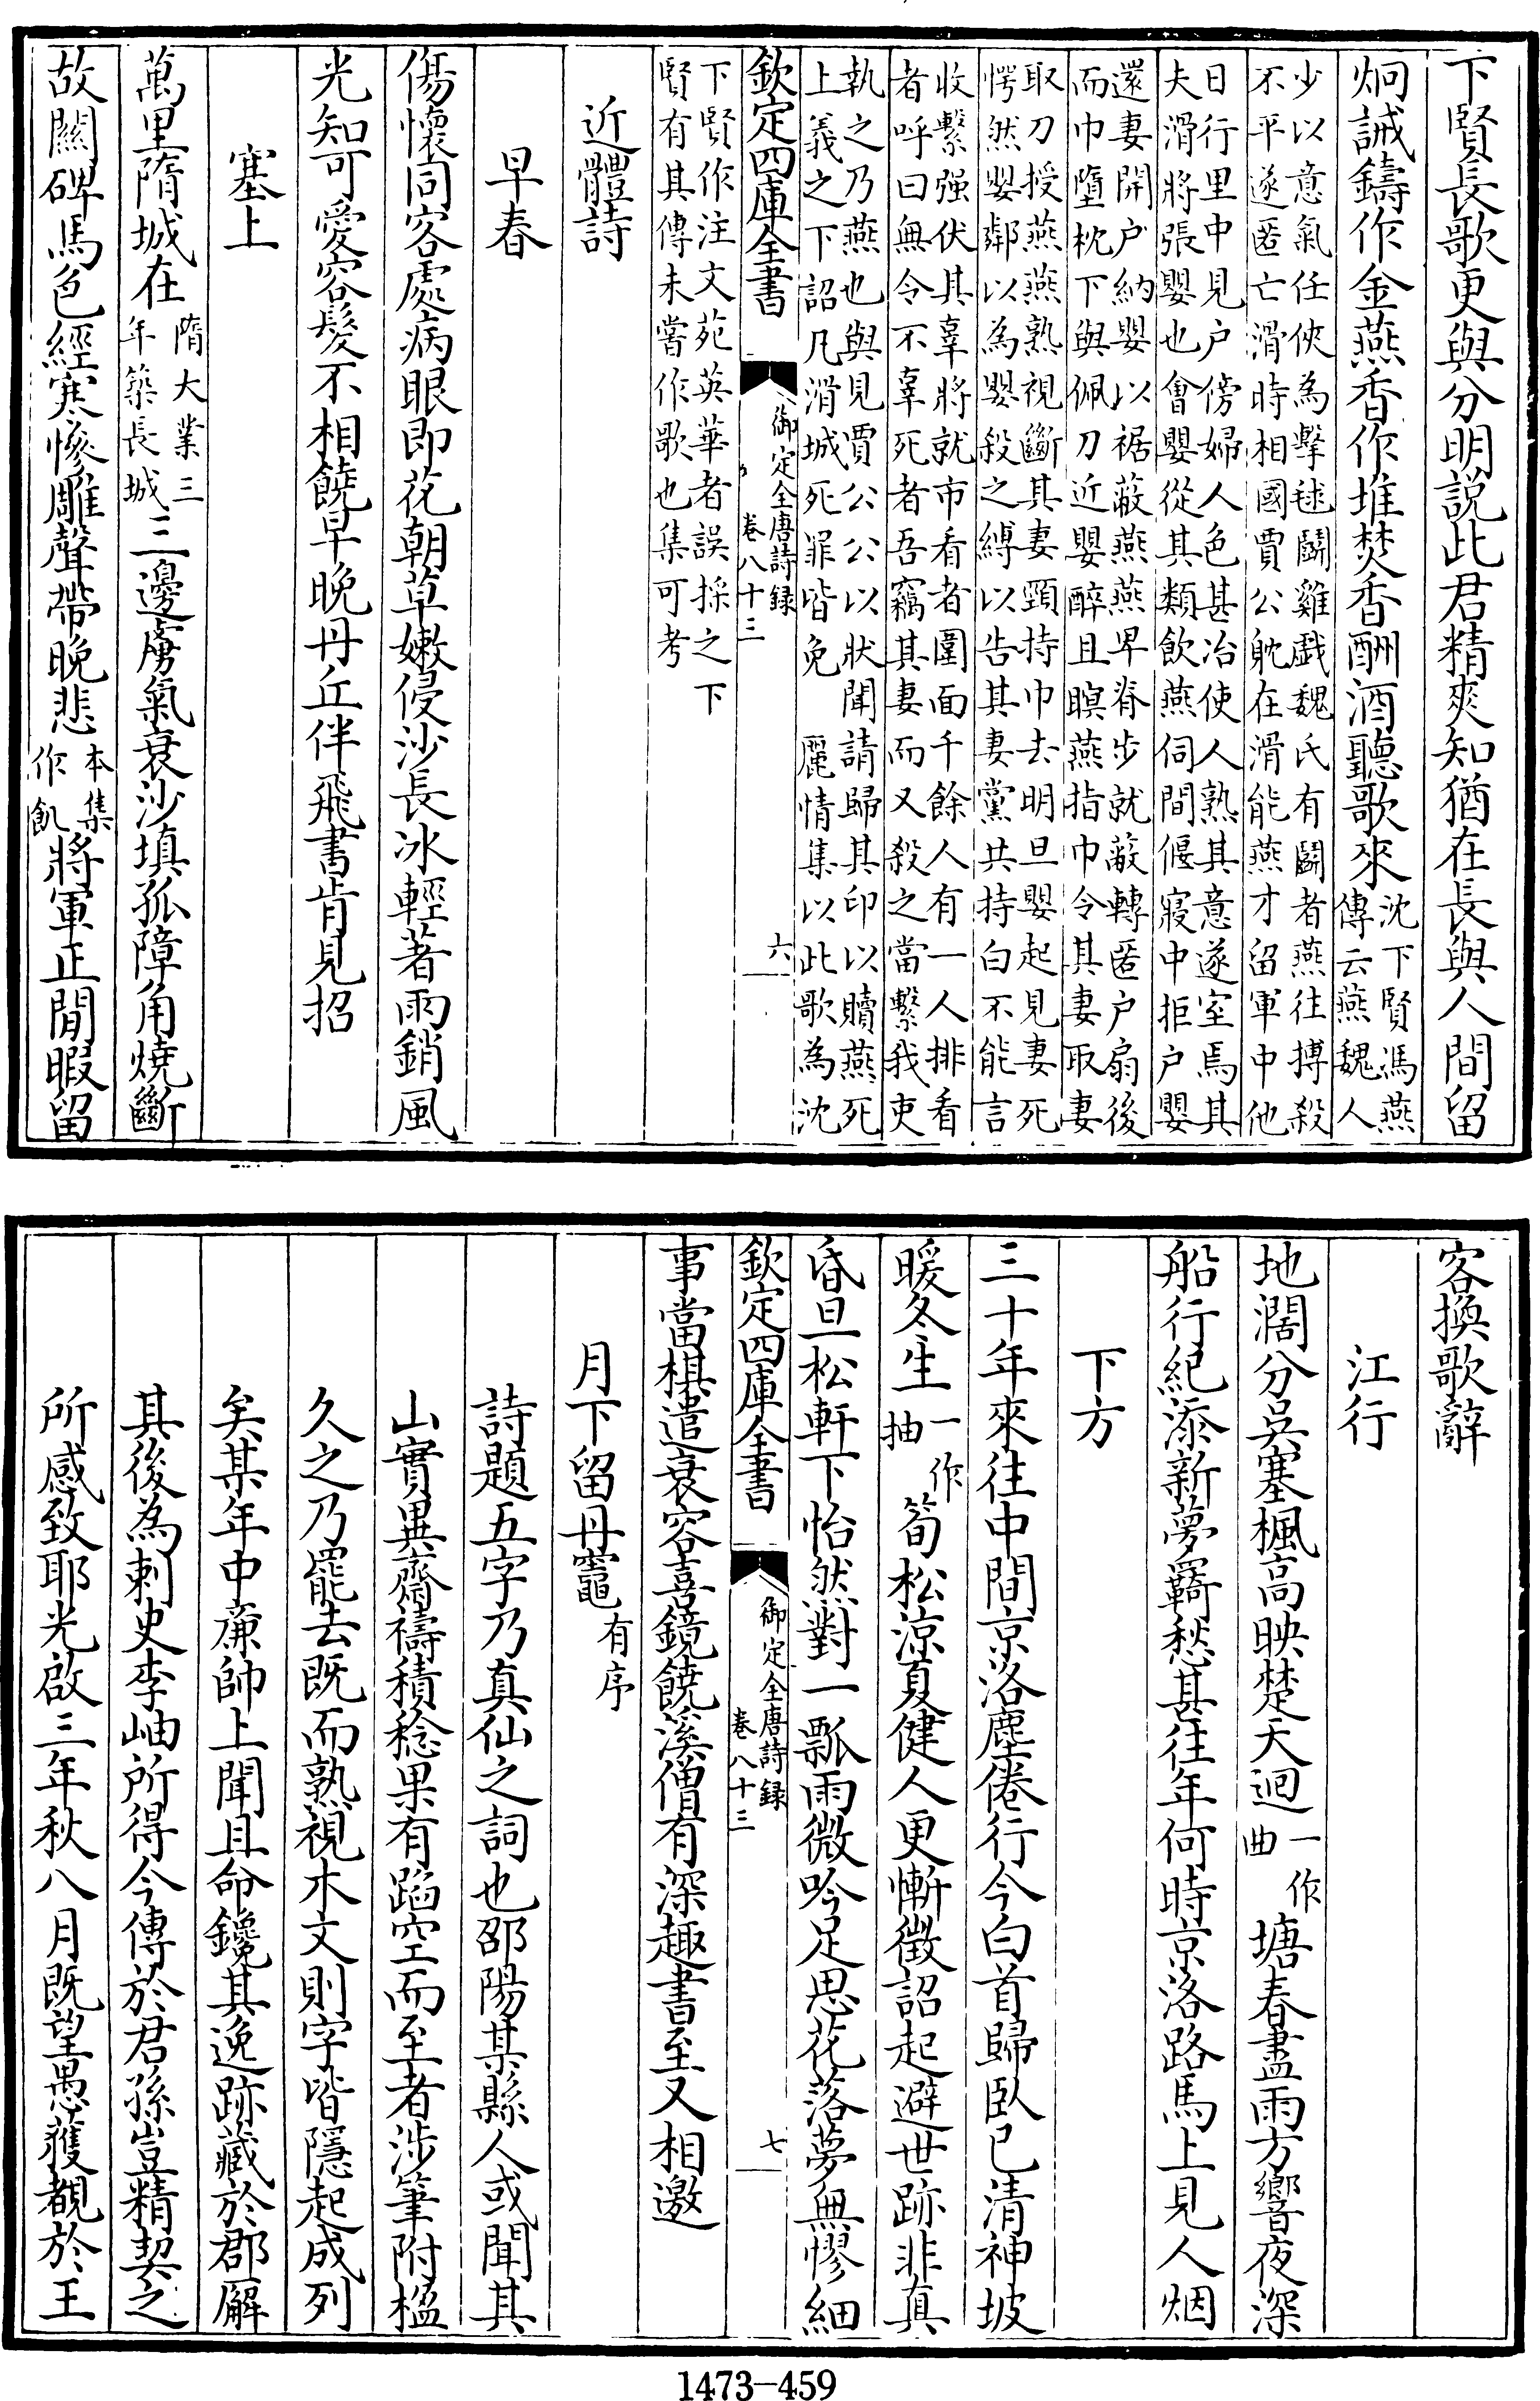 下賢長歌更與分明説此君精爽知猶在長與人間留
炯誡鑄作金燕香作堆焚香酬酒聽歌來沈下賢馮燕傳云燕魏人
少以意氣任俠為擊毬鬭雞戱魏氏有鬭者燕往搏殺
不平遂匿亡滑時相國賈公躭在滑能燕才留軍中他
日行里中見户傍婦人色甚冶使人熟其意遂室焉其
夫滑將張嬰也㑹嬰從其類飲燕伺間偃寢中拒户嬰
還妻開户納嬰以裾蔽燕燕卑脊步就蔽轉匿户扇後
而巾墮枕下與佩刀近嬰醉且瞑燕指巾令其妻取妻
取刀授燕燕熟視斷其妻頸持巾去明旦嬰起見妻死
愕然嬰鄰以為嬰殺之縛以告其妻黨共持白不能言
收繫强伏其辜將就市看者圍面千餘人有一人排看
者呼曰無令不辜死者吾竊其妻而又殺之當繫我吏
執之乃燕也與見賈公公以狀聞請歸其印以贖燕死
上義之下詔凡滑城死罪皆免　麗情集以此歌為沈
欽定四庫全書　御定全唐詩録　卷八十三　六
下賢作注文苑英華者誤採之下
賢有其傳未嘗作歌也集可考
近體詩
早春
傷懷同客處病眼即花朝草嫩侵沙長冰輕著雨銷風
光知可愛容髮不相饒早晚丹丘伴飛書肯見招
塞上
萬里隋城在隋大業三年築長城三邊虜氣衰沙填孤障角燒斷
故關碑馬色經寒慘雕聲帶晚悲本集作飢將軍正閒暇留
客換歌辭
江行
地濶分吳塞楓高映楚天迴一作曲塘春盡雨方響夜深
船行紀添新夢羇愁甚往年何時京洛路馬上見人烟
下方
三十年來往中間京洛塵倦行今白首歸臥已清神坡
暖冬生一作抽筍松涼夏健人更慚徵詔起避世跡非真
昏旦松軒下怡然對一瓢雨微吟足思花落夢無憀細
欽定四庫全書　御定全唐詩録　卷八十三　七
事當棋遣衰容喜鏡饒溪僧有深趣書至又相邀
月下留丹竈有序
詩題五字乃真仙之詞也邵陽某縣人或聞其
山實異齋禱積稔果有蹈空而至者涉筆附楹
久之乃罷去既而孰視木文則字皆隱起成列
矣某年中廉帥上聞且命鑱其逸跡藏於郡廨
其後為刺史李岫所得今傳於君孫豈精契之
所感致耶光啟三年秋八月既望愚獲覩於王
1473-459